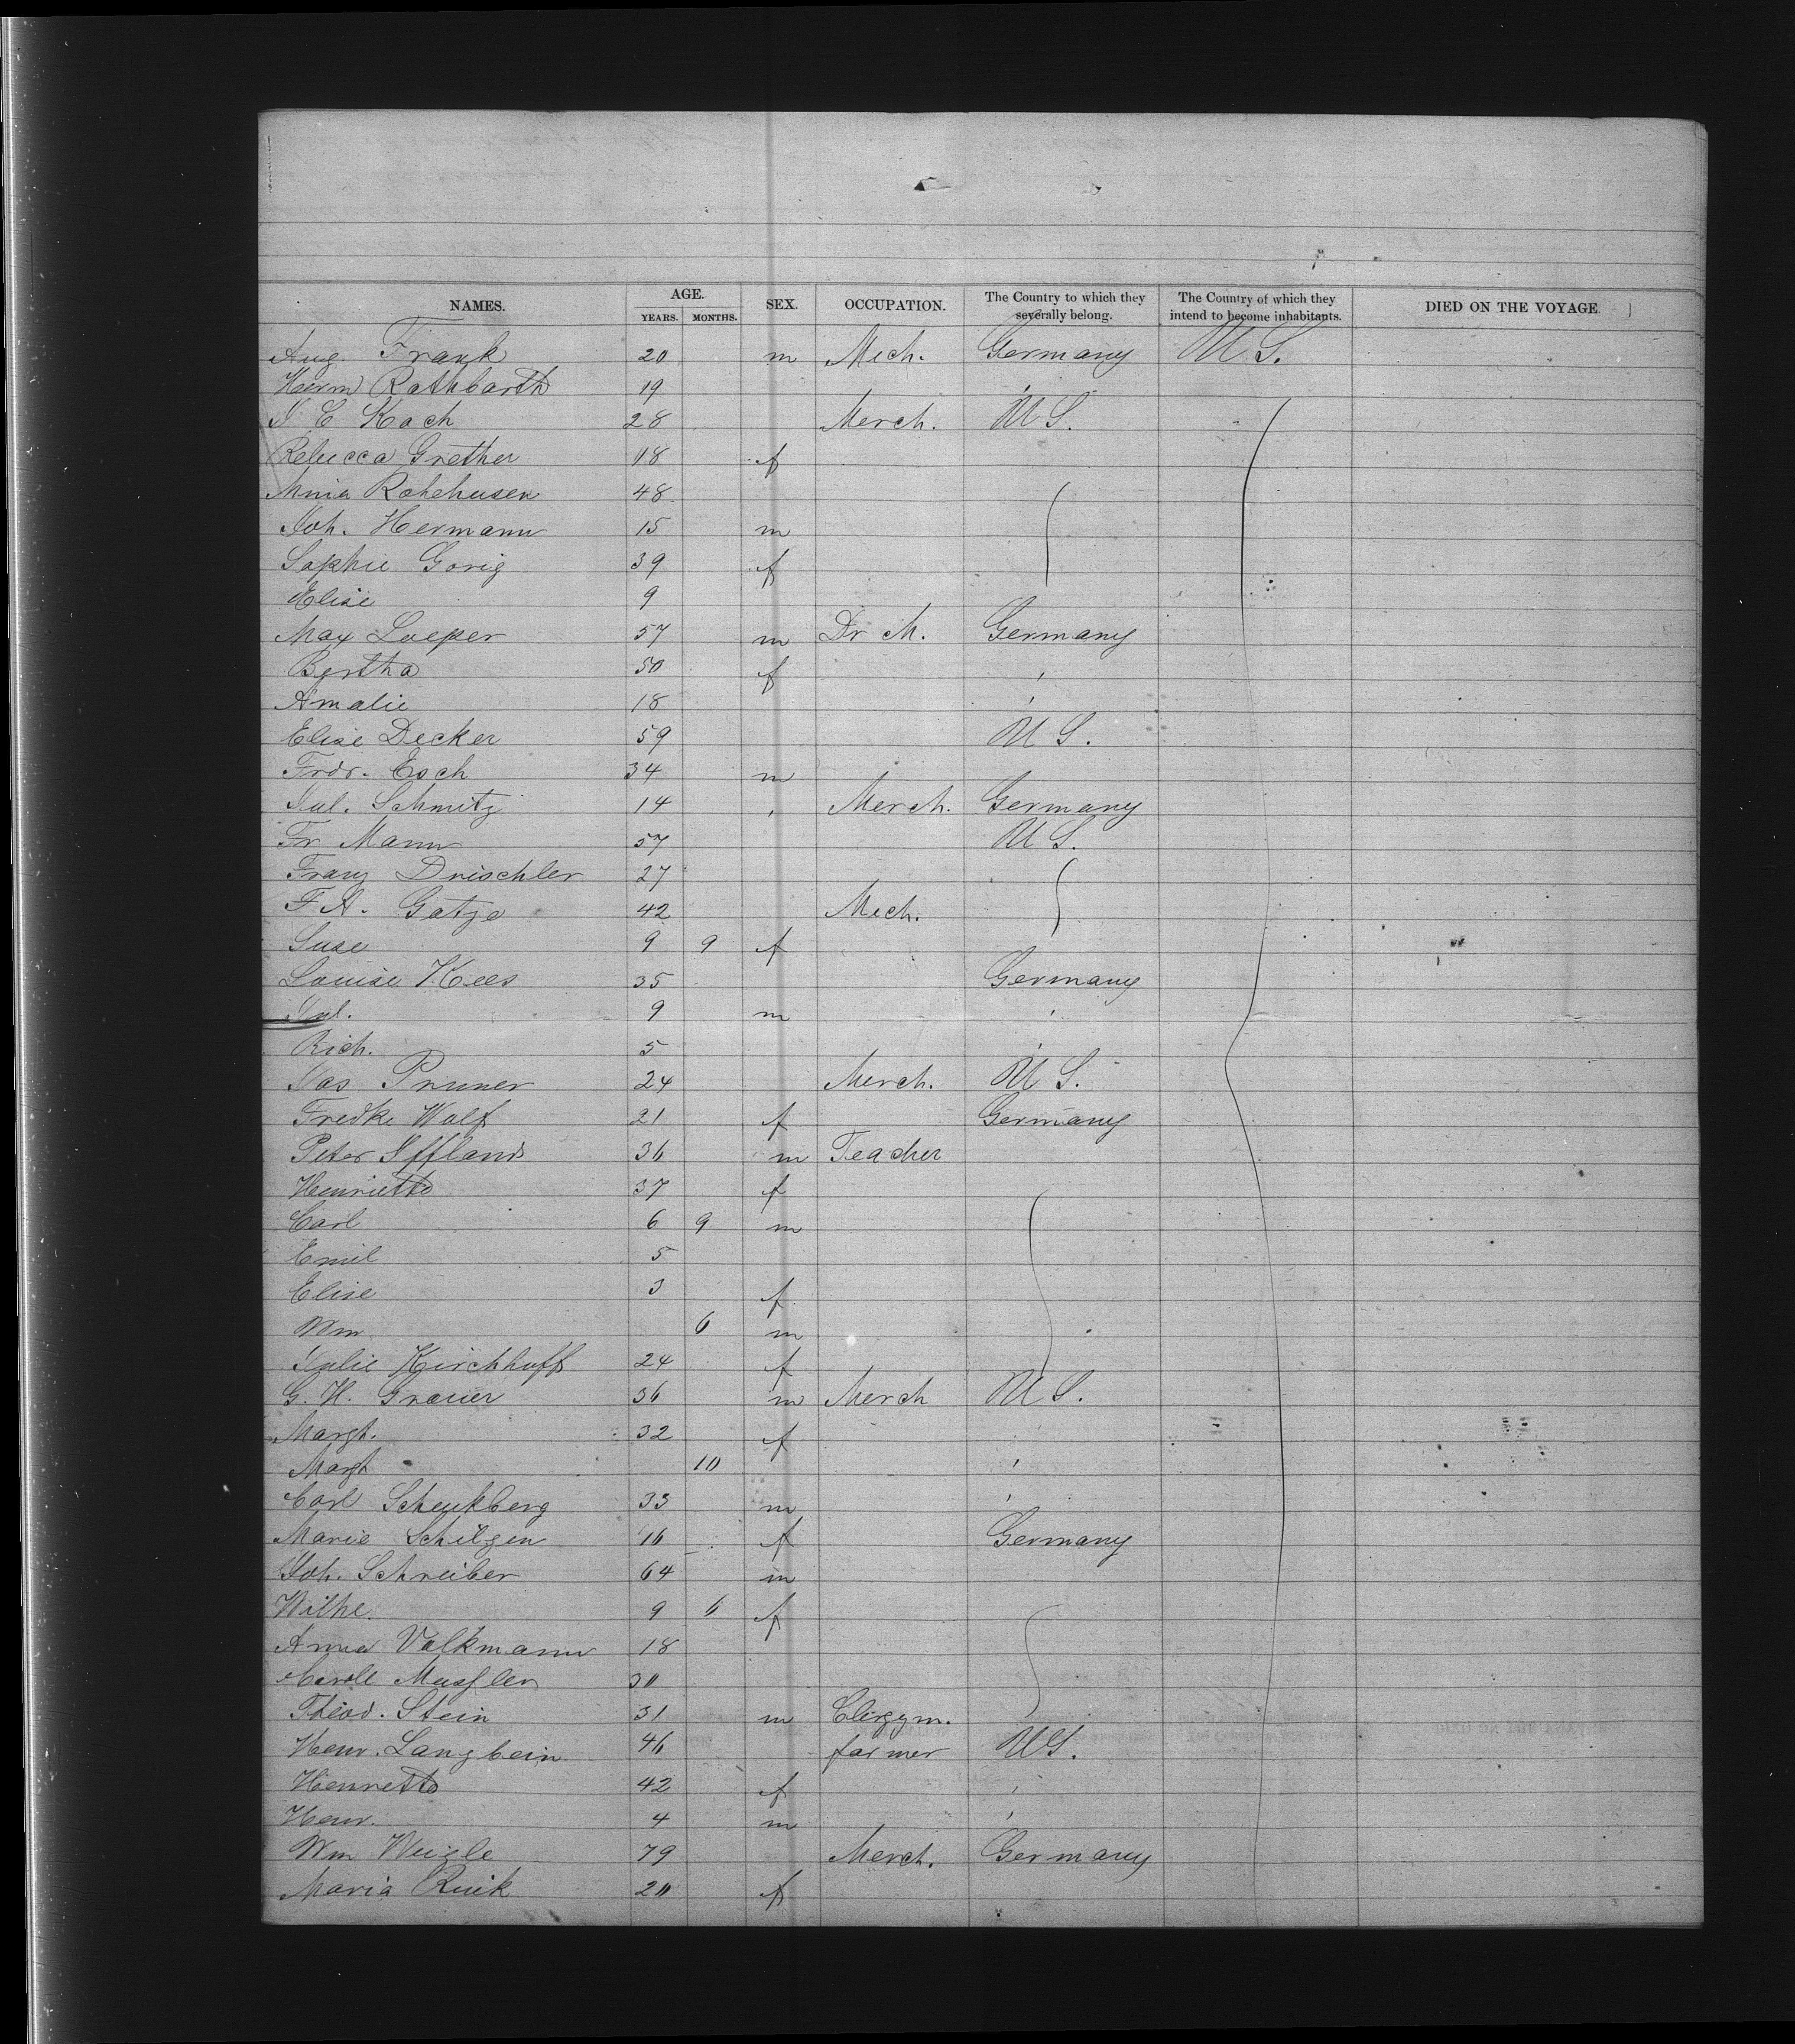 NAMES. AGE. SEX. OCCUPATION. The Country to which they severally belong. The Country of which they intend to become inhabitants. DIED ON THE VOYAGE
YEARS. MONTHS.
Aug Frank 20 m Mech. Germany U S.
Herm Rathbarth 19
J C Koch 28 Merch. U S.
Rebecca Grether 18 f
Mnia Rohehusen 48
Joh. Hermann 15 m
Sophie Gorig 39 f
Elise 9
Max Loeper 57 m Dr M. Germany
Bertha 50 f "
Amalie 18 "
Elise Decker 59 U S.
Frdr. Esch 34 m
Jul. Schmitz 14 " Merch. Germany
Fr Mann 57 U S.
Franz Drischler 27
F A. Gatze 42 Mech.
Suse 9 9 f
Louise Kees 35 Germany
Jul. 9 m "
Rich. 5 "
Jas Pruner 24 Merch. U S.
Fredke Wolf 21 f Germany
Peter Iffland 36 m Teacher
Henriette 37 f
Carl 6 9 m
Emil 5
Elise 3 f
Wm 6 m
Julie Kirchhoff 24 f
G. H. Grauer 36 m Merch U S.
Margt. 32 f "
Margt 10 "
Carl Schenkberg 33 m "
Marie Schilgen 16 f Germany
Joh. Schreiber 64 m
Wilhe. 9 6 f
Anna Volkmann 18
30
Theod. Stein 31 m Clergym.
Henr. Langbein 46 farmer U S.
Henrette 42 f "
Henr. 4 m "
Wm Weigle 79 Merch. Germany
Maria Ruik 20 f